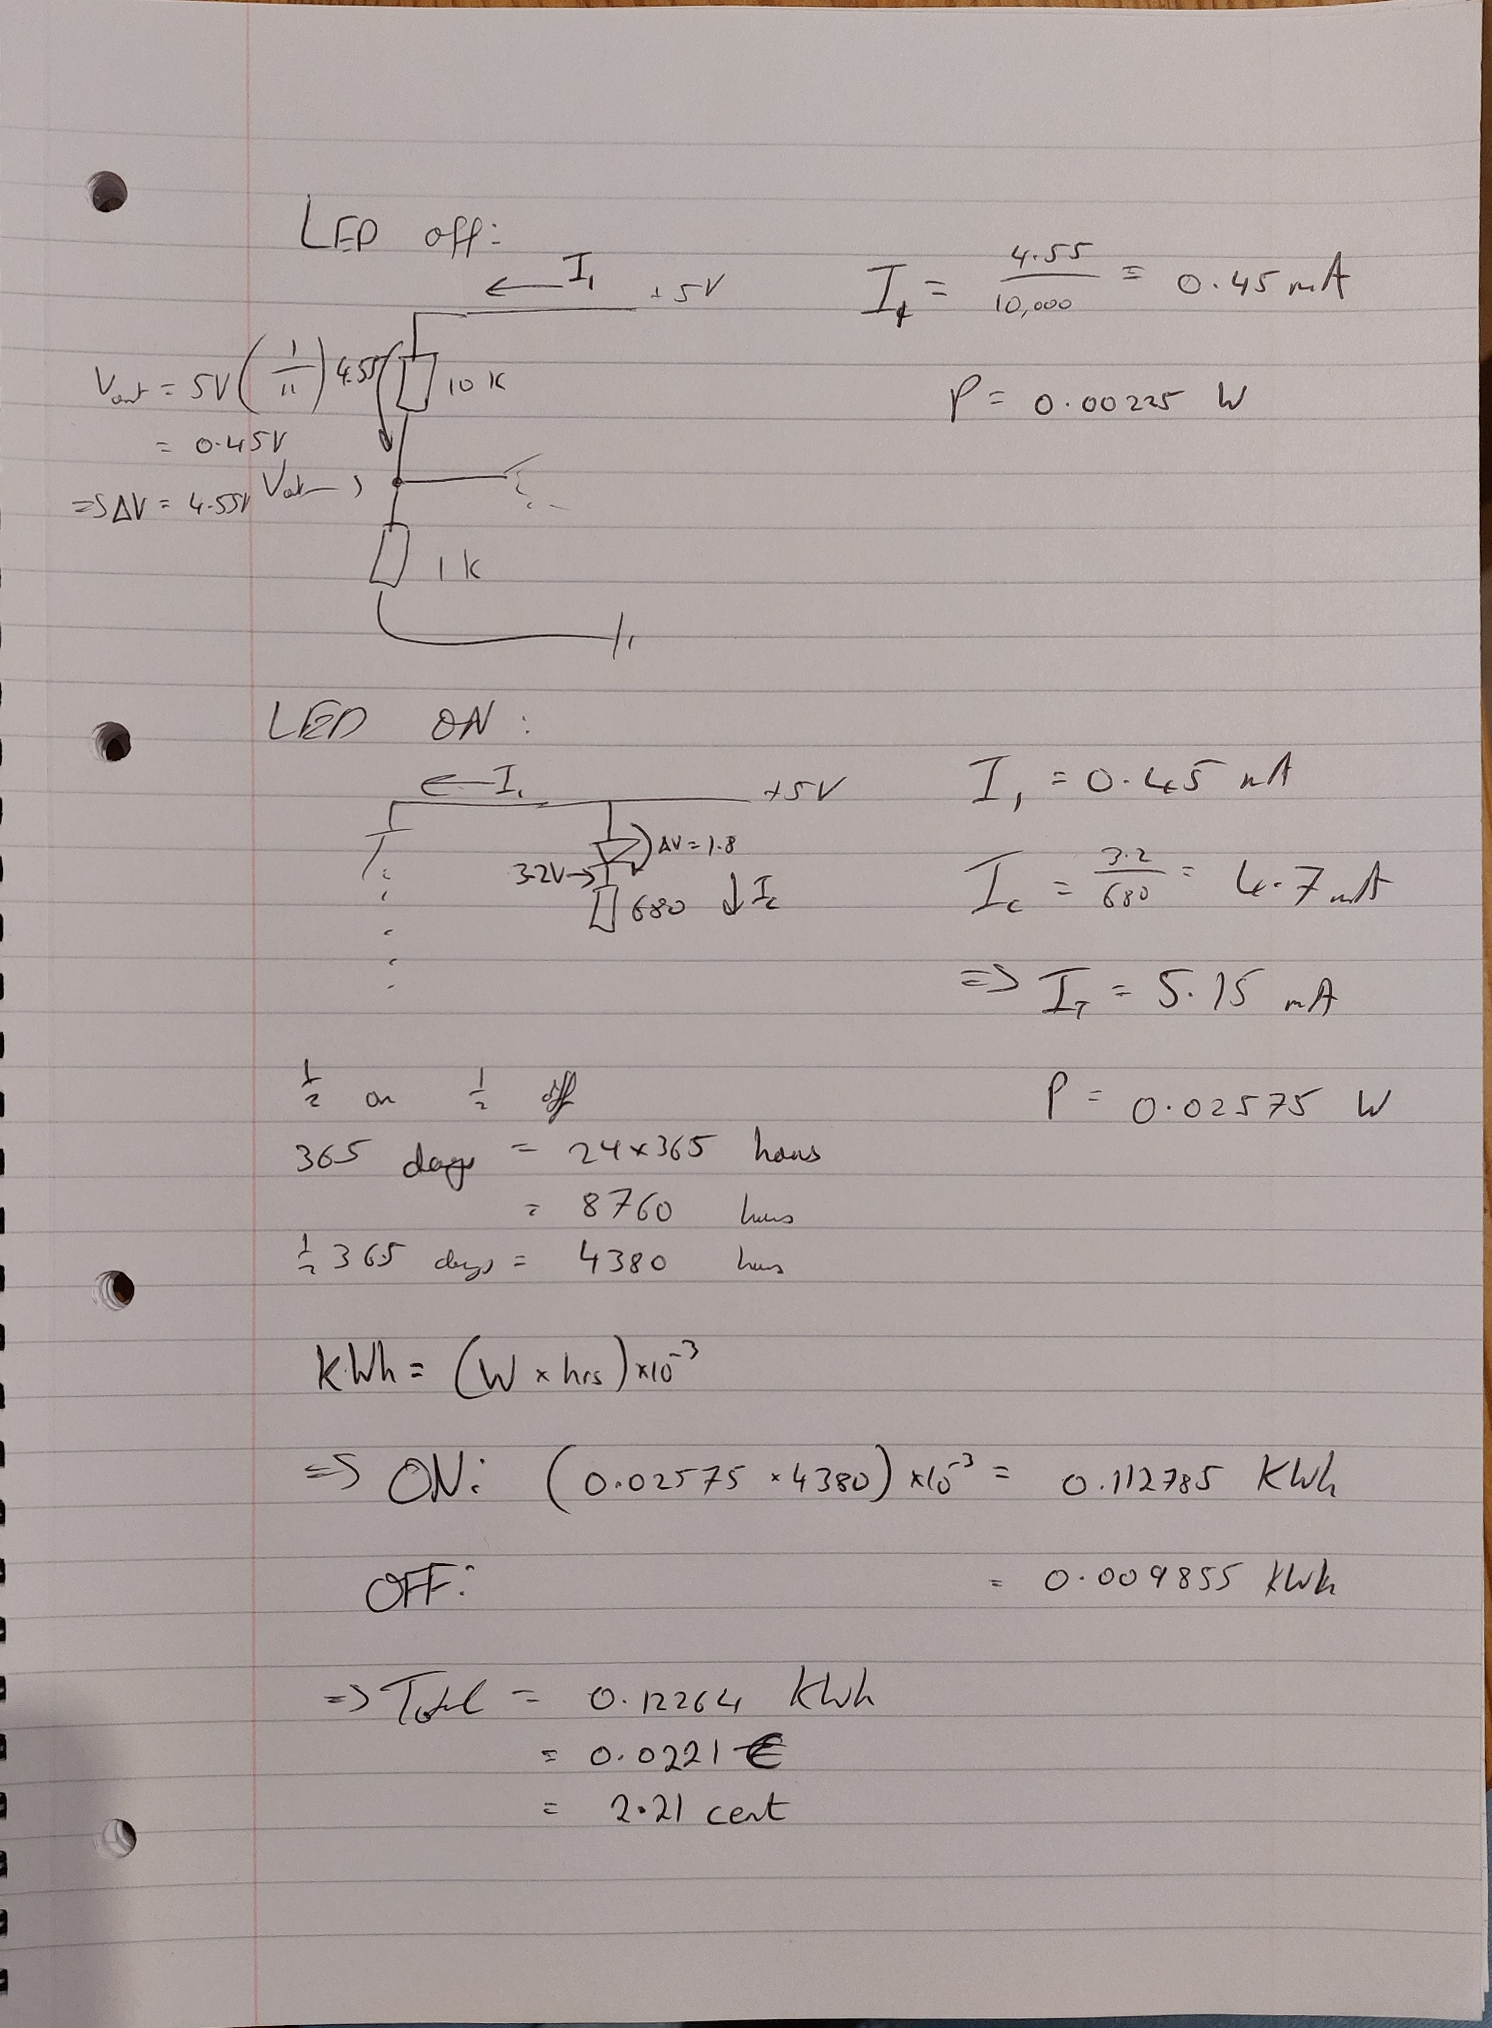 LED off:
← I₁ +5V
I₁ = 4.55/10,000 = 0.45 mA
Vout = 5V(1/11) 4.55 10K
P = 0.00225 W
= 0.45V
=> ΔV = 4.55V Vout
1K
LED ON:
← I₁ +5V
I₁ = 0.45 mA
ΔV = 1.8
3.2V →
680 ↓ Ic
Ic = 3.2/680 = 4.7 mA
=> I_T = 5.15 mA
1/2 on 1/2 off
P = 0.02575 W
365 days = 24×365 hours
= 8760 hours
1/2 365 days = 4380 hours
KWh = (W × hrs)×10⁻³
=> ON: (0.02575 × 4380) ×10⁻³ = 0.112785 KWh
OFF: = 0.009855 KWh
=> Total = 0.12264 KWh
= 0.0221 €
= 2.21 cent